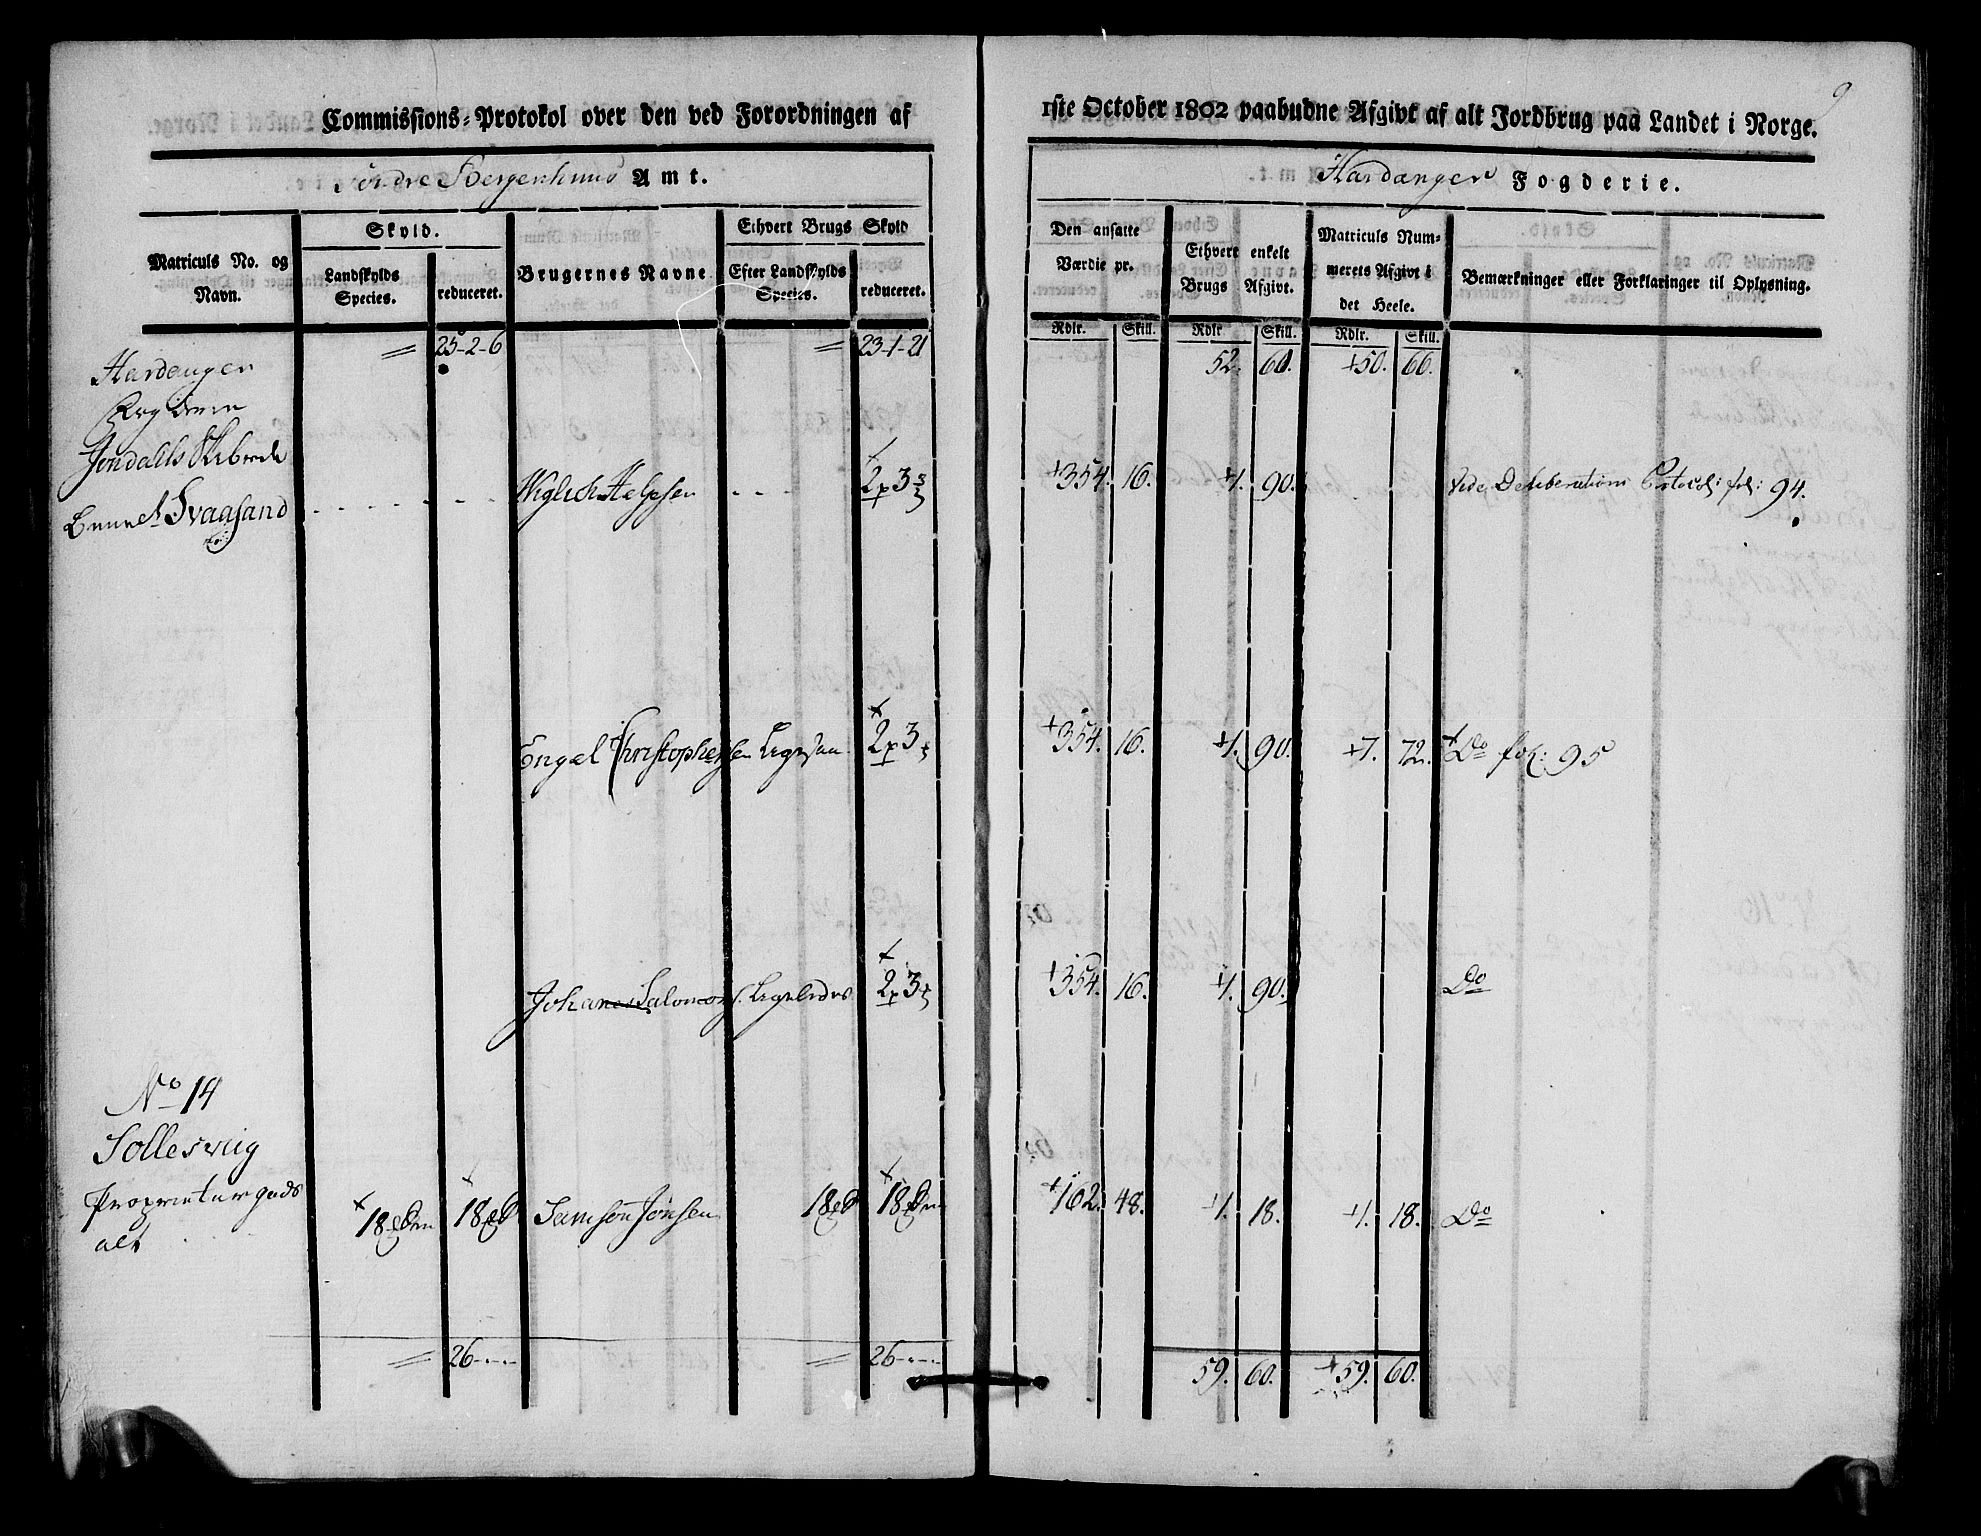 Commissions-Protokol over den ved Forordningen af
1ste October 1802 paabudne Afgivt af alt Jordbrug paa Landet i Norge.
9
Søndre Bergenhuus Amt.
Hardanger Fogderie.
Matriculs No. og Navn.
Skyld.
Landskylds Species.
reduceret.
Brugernes Navne
Ethvert Brugs Skyld
Efter Landskylds Species.
reduceret.
Den ansatte Værdie pr.
Rdlr. Skill.
Ethvert enkelt Brugs Afgivt.
Rdlr Skill.
Matriculs Nummerets Afgivt i det Heele.
Rdlr. Skill.
Bemærkninger eller Forklaringer til Oplysning.
Hardanger = 25-2-6 = 23-1-21 52. 60. +50. 60.
Jondahls Skibrede
Svaasand Wiglich Helgesen 2 p 3 +354. 16. +4. 90. Vide Deliberations Protocol: fol: 94.
Engel Christophersen Ligesaa 2 p 3 +354. 16. +4. 90. +7. 72. Do fol: 95
Johanes Salomons. Ligeledes 2 p 3 +354. 16. +4. 90. Do
No 14
Sollesviig
Proprietair gods
alt 18 18 Samson Jonsen 18 18 +162. 48. +1. 18. +1. 18. Do
= 26 - - - = 26 - - - 59. 60. +59. 60.